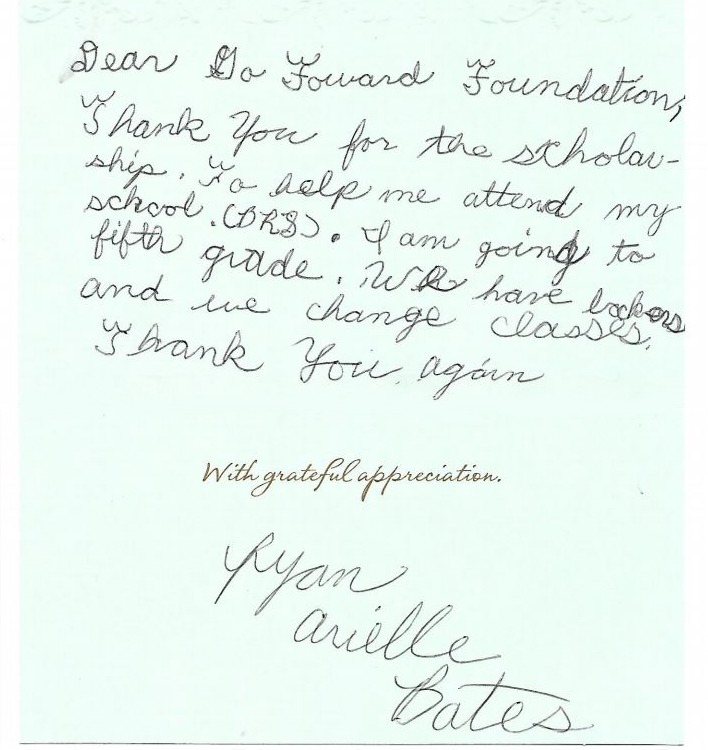 Dear Go Foward Foundation,
Thank You for the scholar-
ship. To help me attend my
school. (DRS). I am going to
fifth grade. We have lockers
and we change classes.
Thank You again
With grateful appreciation.
Ryan
Arielle
Bates